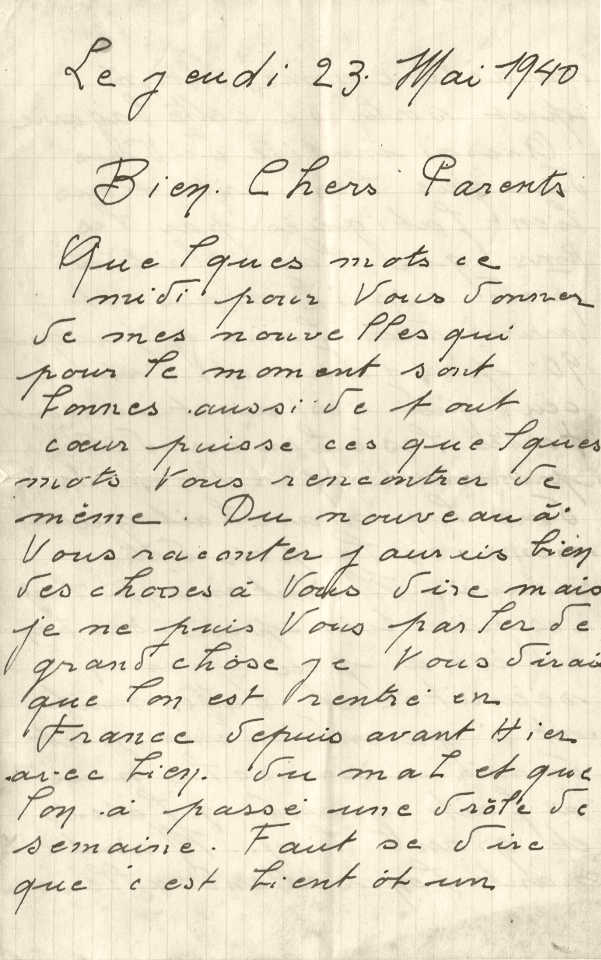 Le jeudi 23. Mai 1940
Bien. Chers Parents
Quelques mots ce
midi pour Vous donner
de mes nouvelles qui
pour le moment sont
bonnes aussi de tout
cœur puisse ces quelques
mots Vous rencontrer de
même. Du nouveau à
Vous raconter jaurais bien
des choses à Vous dire mais
je ne puis Vous parler de
grand chose je Vous dirai
que lon est rentré en
France depuis avant Hier
avec bien. du mal et que
lon a passé une drôle de
semaine. Faut se dire
que c est bientôt un